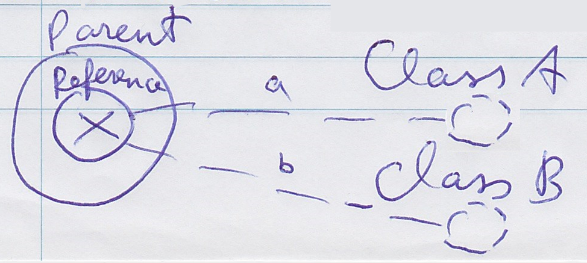 Parent
Reference
X
a
Class A
b
Class B